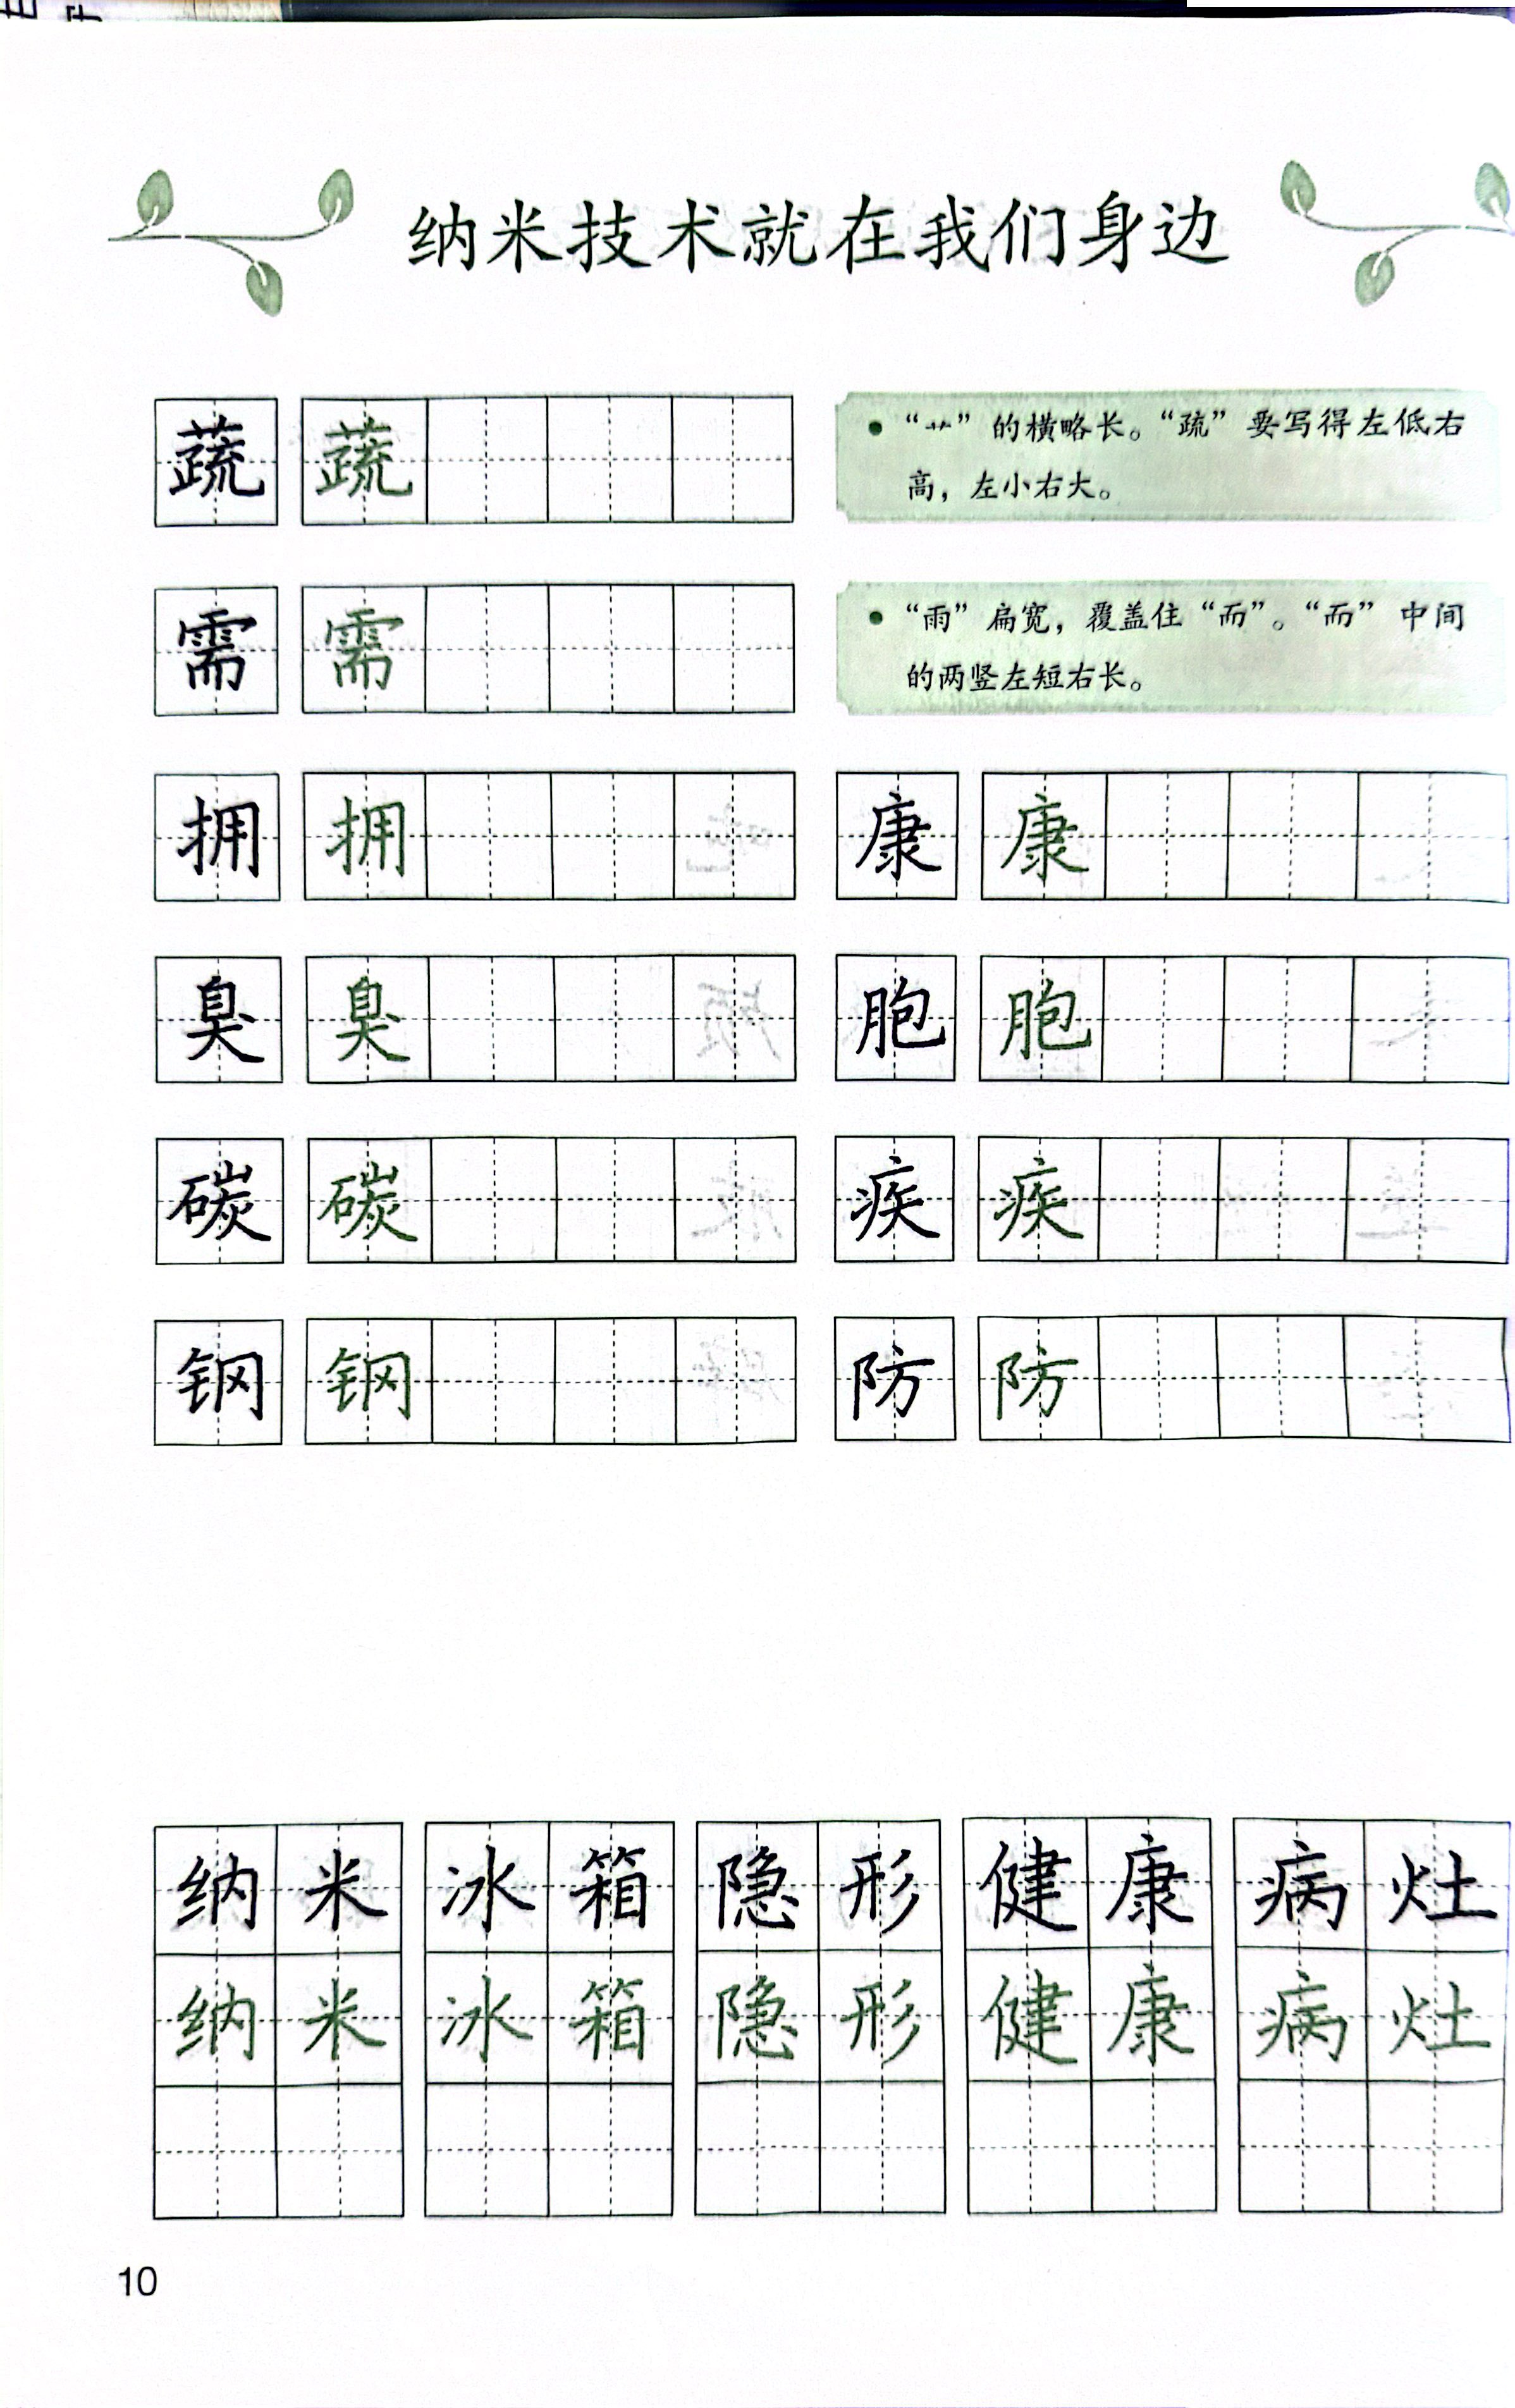 纳米技术就在我们身边
蔬 蔬
•“艹”的横略长。“疏”要写得左低右
高，左小右大。
需 需
•“雨”扁宽，覆盖住“而”。“而”中间
的两竖左短右长。
拥 拥 康 康
臭 臭 胞 胞
碳 碳 疾 疾
钢 钢 防 防
纳米 冰箱 隐形 健康 病灶
纳米 冰箱 隐形 健康 病灶
10